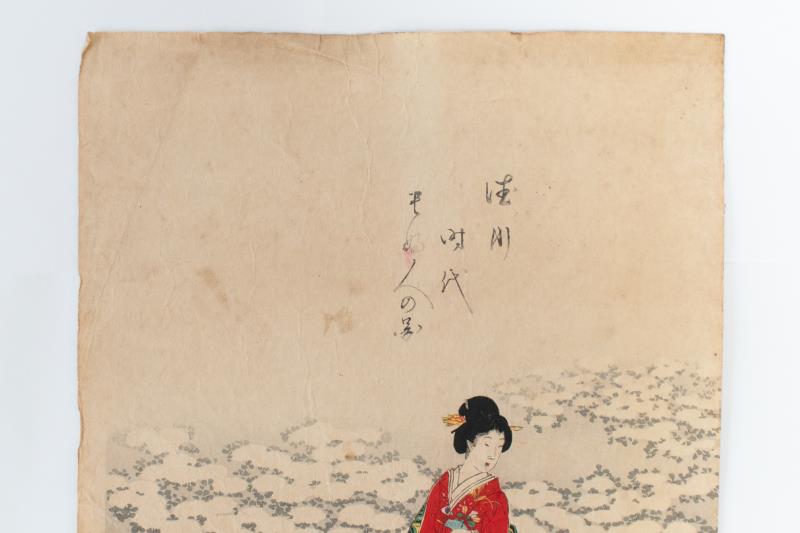 徳川
時代
貴婦人の図